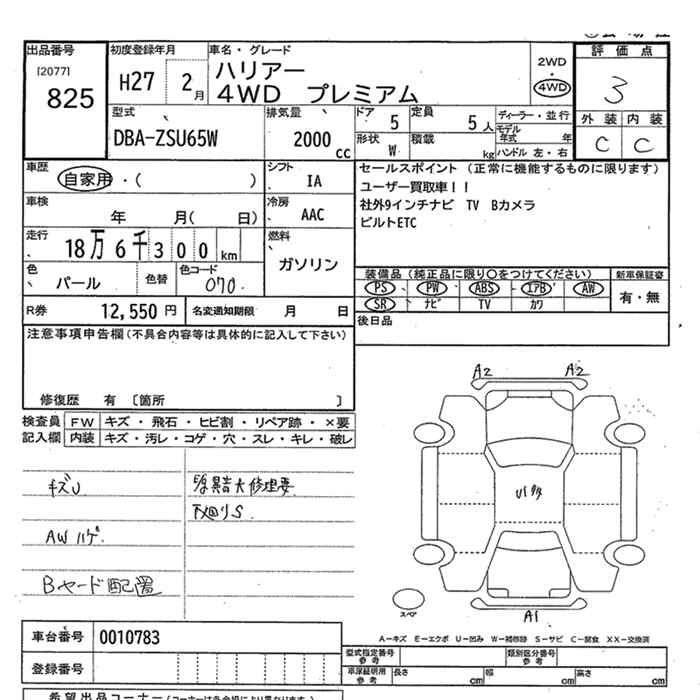 出品番号
[2077]
825
初度登録年月
H27 2月
車名・グレード
ハリアー
4WD プレミアム
2WD
・
4WD
評価点
3
外装 内装
C C
型式
DBA-ZSU65W
排気量
2000 cc
ドア
5
定員
5人
形状
W
積載
kg
ディーラー・並行
モデル年式 年
ハンドル 左・右
車歴
自家用・( )
シフト
IA
車検
年 月( 日)
冷房
AAC
走行
18万6千300km
燃料
ガソリン
色
パール
色替
色コード
070
R券 12,550円
名変通知期限 月 日
セールスポイント (正常に機能するものに限ります)
ユーザー買取車!!
社外9インチナビ TV Bカメラ
ビルトETC
装備品 (純正品に限り○をつけてください)
PS PW ABS エアB AW
SR ナビ TV カワ
新車保証書
有・無
後日品
注意事項申告欄(不具合内容等は具体的に記入して下さい)
修復歴 有 [箇所 ]
検査員記入欄
FW キズ・飛石・ヒビ割・リペア跡・×要
内装 キズ・汚レ・コゲ・穴・スレ・キレ・破レ
キズU
AWハゲ
Bヤード配置
異音大修理要
下廻りS
A2 A2
U1多
スペア
A1
A-キズ E-エクボ U-凹み W-補修跡 S-サビ C-腐食 XX-交換済
車台番号 0010783
登録番号
型式指定番号 参考
類別区分番号 参考
車庫証明用 参考 長さ cm 幅 cm 高さ cm
希望出品コーナー